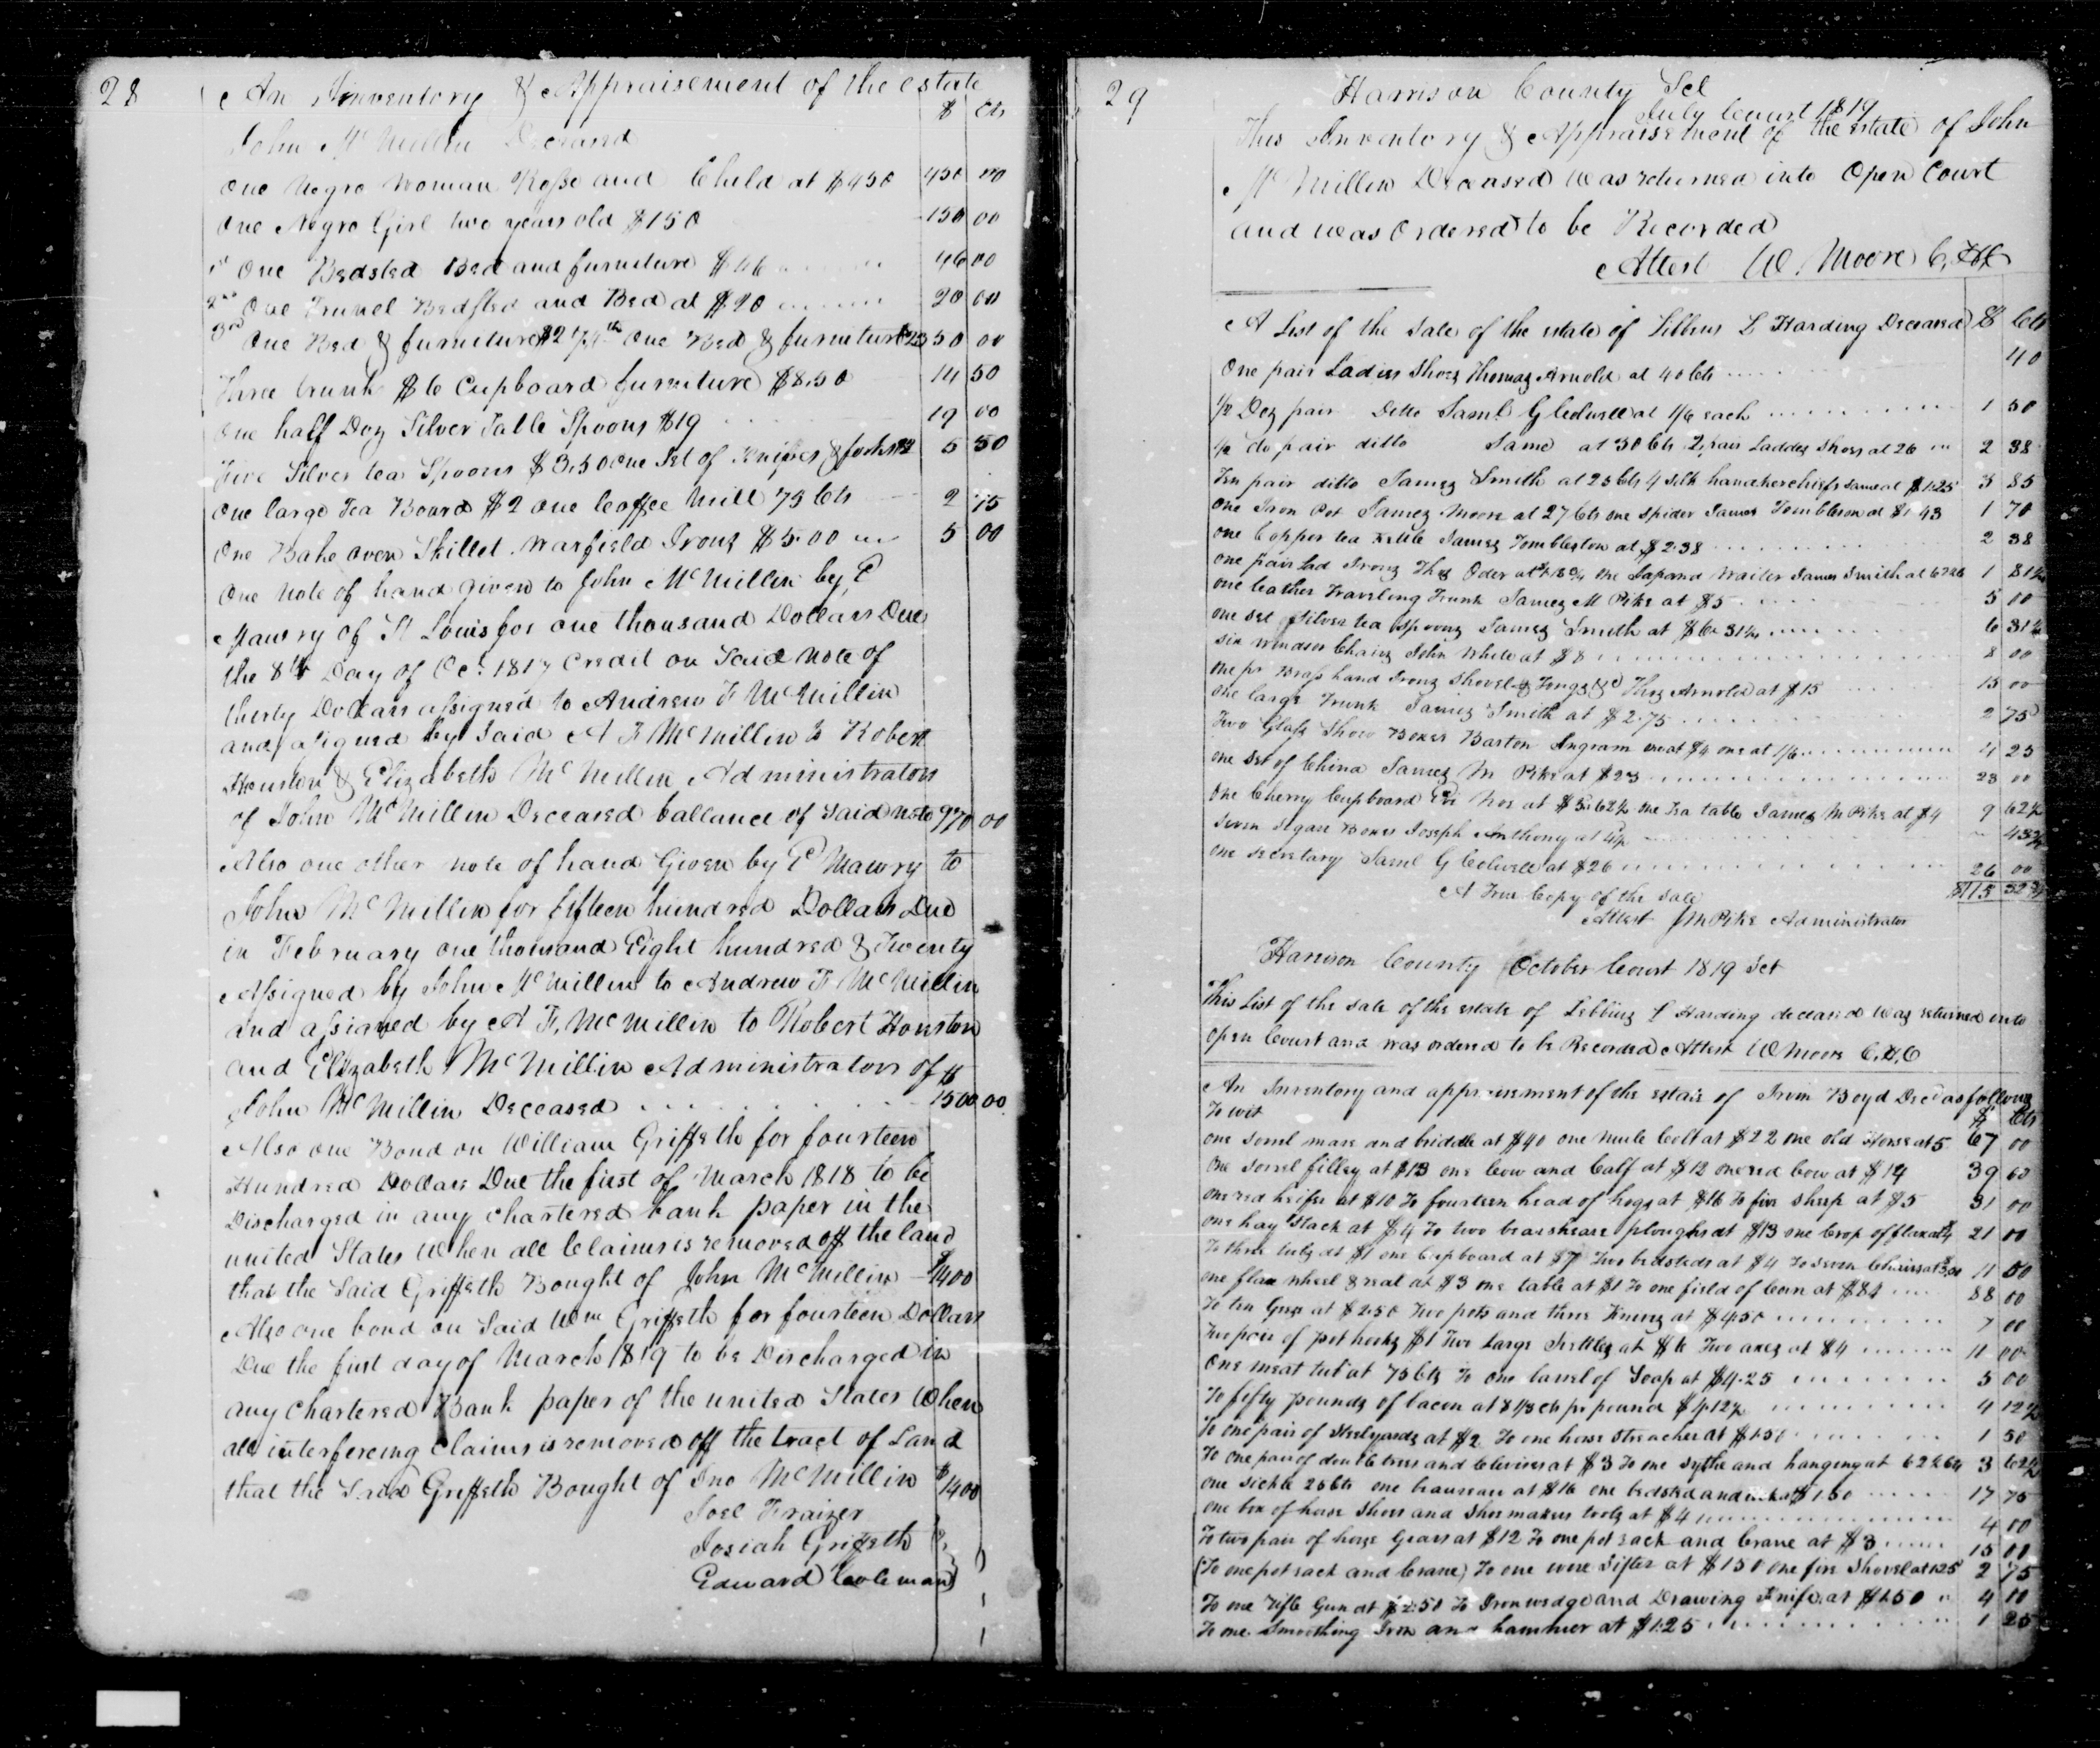 28
An Inventory & Appraisement of the estate
$ Cts
John McMillin Deceased
One Negro Woman Rose and Child at $450 450 00
One Negro Girl two years old $150 150 00
1st One Bedsted Bed and furniture $46 46 00
2nd One Trunel Bedsted and Bed at $20 20 00
3rd One Bed & furniture One Bed & furniture 50 00
Three trunks $6 Cupboard furniture $8.50 14 50
One half Doz Silver Table Spoons $19 19 00
Five Silver tea Spoons $3.50 One Set of Knives & forks $2 5 50
One large Tea Board $2 One Coffee Mill 75 Cts 2 75
One Bake oven Skillet Warfield Irons $5.00 5 00
One Note of hand given to John McMillin by P
Mawry of St Louis for one thousand Dollars Due
the 8th Day of Oct 1817 Credit on Said Note of
therty Dollars assigned to Andrew F McMillin
and asigned by Said A F McMillin to Robert
Houston & Elizabeth McMillin Administrators
of John McMillin Deceased ballance of Said note 970 00
Also one other note of hand Given by P Mawry to
John McMillin for fifteen hundred Dollars Due
in February one thousand Eight hundred & Twenty
Assigned by John McMillin to Andrew F McMillin
and assigned by A F, McMillin to Robert Houston
and Elizabeth McMillin Administrators of $
John McMillin Deceased 1500 00
Also one Bond on William Griffeth for fourteen
Hundred Dollars Due the first of March 1818 to be
Discharged in any chartered bank paper in the
united States When all Claims is removed off the land
that the Said Griffeth Bought of John McMillin $1400
Also one bond on Said Wm Griffeth for fourteen Dollars
Due the first day of March 1819 to be Discharged in
any Chartered Bank paper of the united States When
all interfereing Claims is removed off the tract of Land
that the Said Griffeth Bought of Jno McMillin $1400
Joel Fraizer
Josiah Griffeth
Edward Coleman
29
Harrison County Sct
July Court 1819
This Inventory & Appraisement of the estate of John
McMillin Deceased was returned into Open Court
and was Ordered to be Recorded
Attest W. Moore C,
A List of the Sale of the estate of Libbius L Harding Deceased $ Cts
One pair Ladies Shoes Thomas Arnold at 40 Cts 40
1/2 Doz pair Ditto Saml G Colwell at 1/6 each 1 50
1/2 do pair ditto Same at 30 Cts 2 pair Laddes Shoes at 26 2 38
Ten pair ditto James Smith at 25 Cts 4 Silk handkerchiefs Same at $1.25 3 85
One Iron Pot James Moore at 27 Cts one Spider James Tombleson at $1 43 1 70
One Copper tea Kettle James Tombleston at $2.38 2 38
One pair Sad Irons Thos Oder at one Japand Waiter James Smith at 1 81
one leather Traveling Trunk James M Pike at $5 5 00
one set Silver tea spoons James Smith at $6.31 1/4 6 31 1/4
Six windser Chairs John White at $8 8 00
One pr Brass hand Irons Shovel & Tongs &c Thos Arnold at $15 15 00
One large Trunk James Smith at $2.75 2 75
Two Glass Show Boxes Barton Ingram one at $4 one at 1/6 4 25
One set of China James M Pike at $23 23 00
One Cherry Cupboard at $5.62 1/2 one Tea table James M Pike at $4 9 62 1/2
Seven Segar Boxes Joseph Anthony at
One secretary Saml G Colwell at $26 26 00
A True Copy of the Sale
Attest J M Pike Administrator
Harrison County October Court 1819 Sct
This List of the sale of the estate of Libbius L Harding deceased was returned into
open Court and was ordered to be Recorded Attest W Moore C,
An Inventory and appraisement of the estate of Irvin Boyd Decd as follows
To wit $ Cts
one sorrel mare and briddle at $40 one mule Colt at $22 one old Horse at 5 67 00
One sorrel filley at $13 one Cow and Calf at $12 one red Cow at $14 39 00
one red heiffer at $10 To fourteen head of hogs at $16 To five sheep at $5 31 00
one hay Stack at $4 To two bearsheare ploughs at $13 one Crop of flax at $4 21 00
To three tubs at $1 one Cupboard at Two bedsteds at $4 To seven Chairs at 11 50
one flax wheel & reel at $3 one table at $1 To one field of Corn at $84 88 00
To ten Gees at $2.50 Two pots and three at $4.50 7 00
Two pair of pot hooks $1 Two large Kettles at $6 Two axes at $4 11 00
One meat tub at 75 Cts To one barrel of Soap at $4.25 5 00
To fifty pounds of bacon at 8 1/3 cts pr pound $4.12 1/2 4 12 1/2
To one pair of Steelyards at $2 To one horse Streacher at 1 50
To one pair of double trees and Clevises at $3 To one Sythe and hanging at 3 62 1/2
one sickle 25 Cts one beaureau at $16 one bedsted and at $1.50 17 75
one box of horse Shoes and Shoemakers tools at $4 4 00
To two pair of horse Gears at $12 To one pot rack and Crane at $3 15 00
(To one pot rack and Crane) To one wire Sifter at $1.50 one fire Shovel at 1.25 2 75
To one rifle Gun at $2.50 To Iron wedge and Drawing Knife at $1.50 4 00
To one Smoothing Iron and hammer at $1.25 1 25